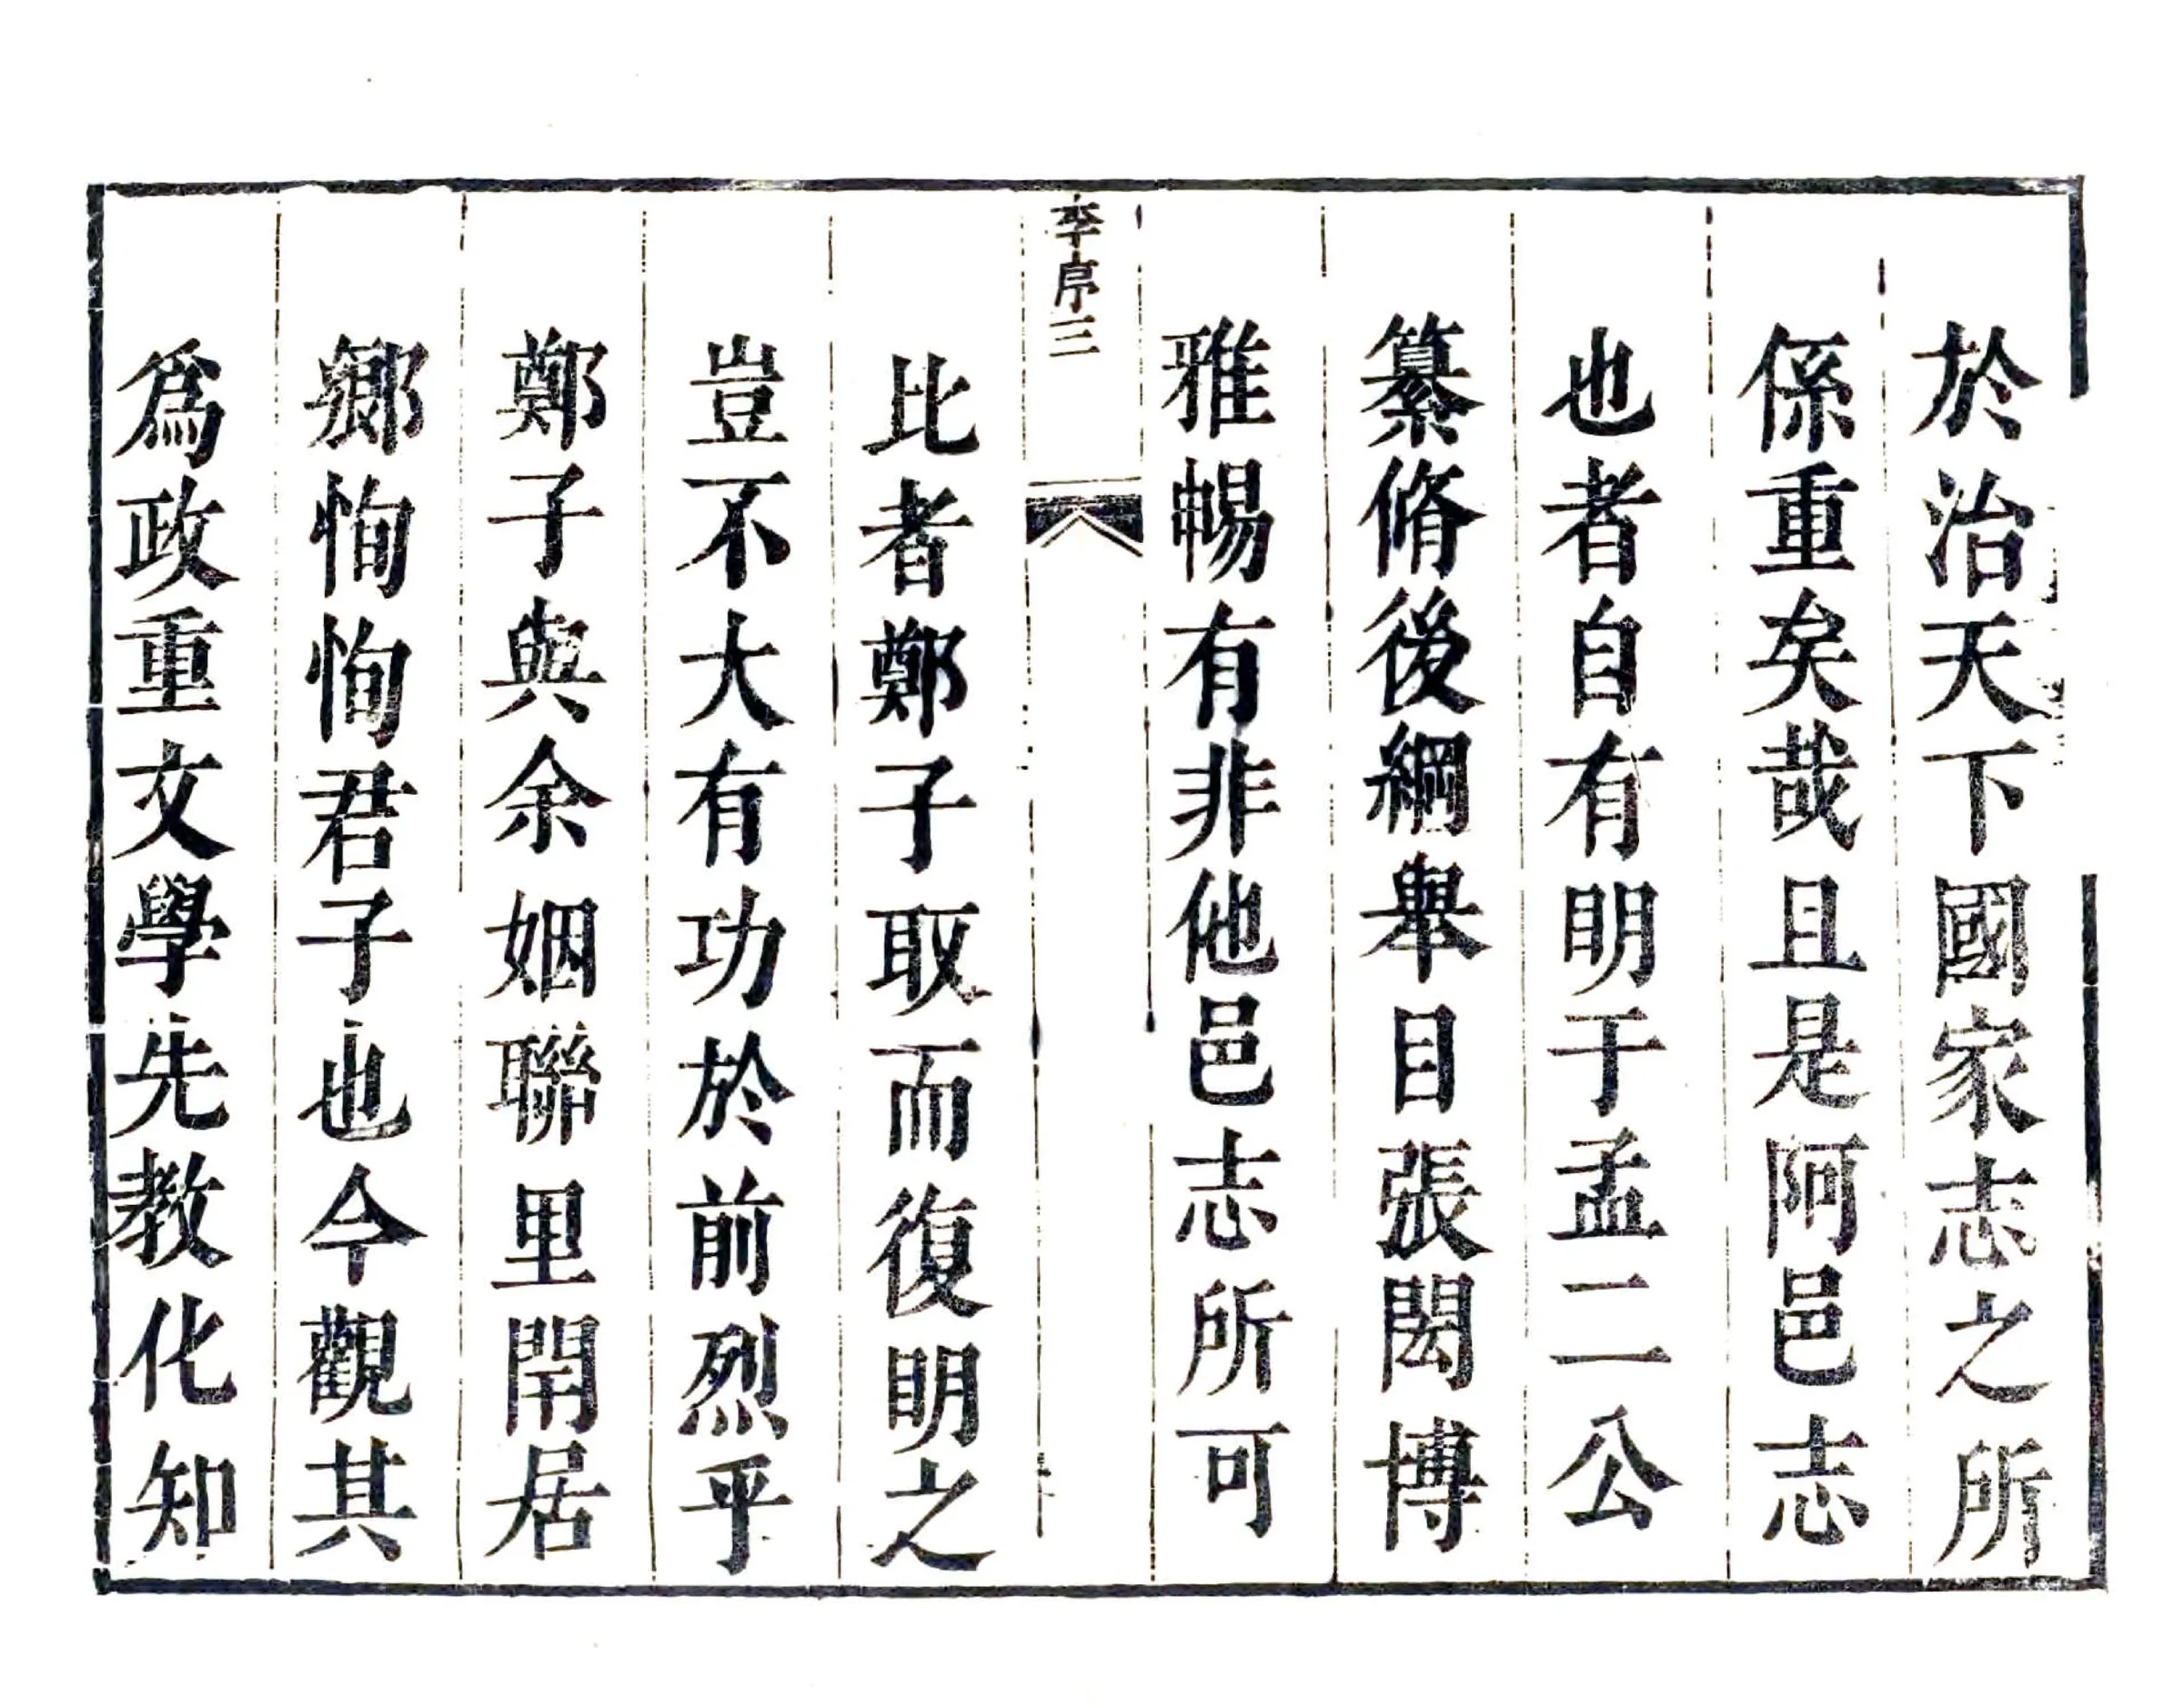 於治天下國家志之所
係重矣哉且是阿邑志
也者自有明于孟二公
纂脩後綱舉目張閎博
雅暢有非他邑志所可
李序三
比者鄭子取而復明之
豈不大有功於前烈乎
鄭子與余姻聯里閈居
鄉恂恂君子也今觀其
爲政重文學先教化知